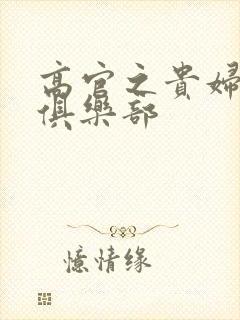 高官之貴婦
俱樂部
憶情缘